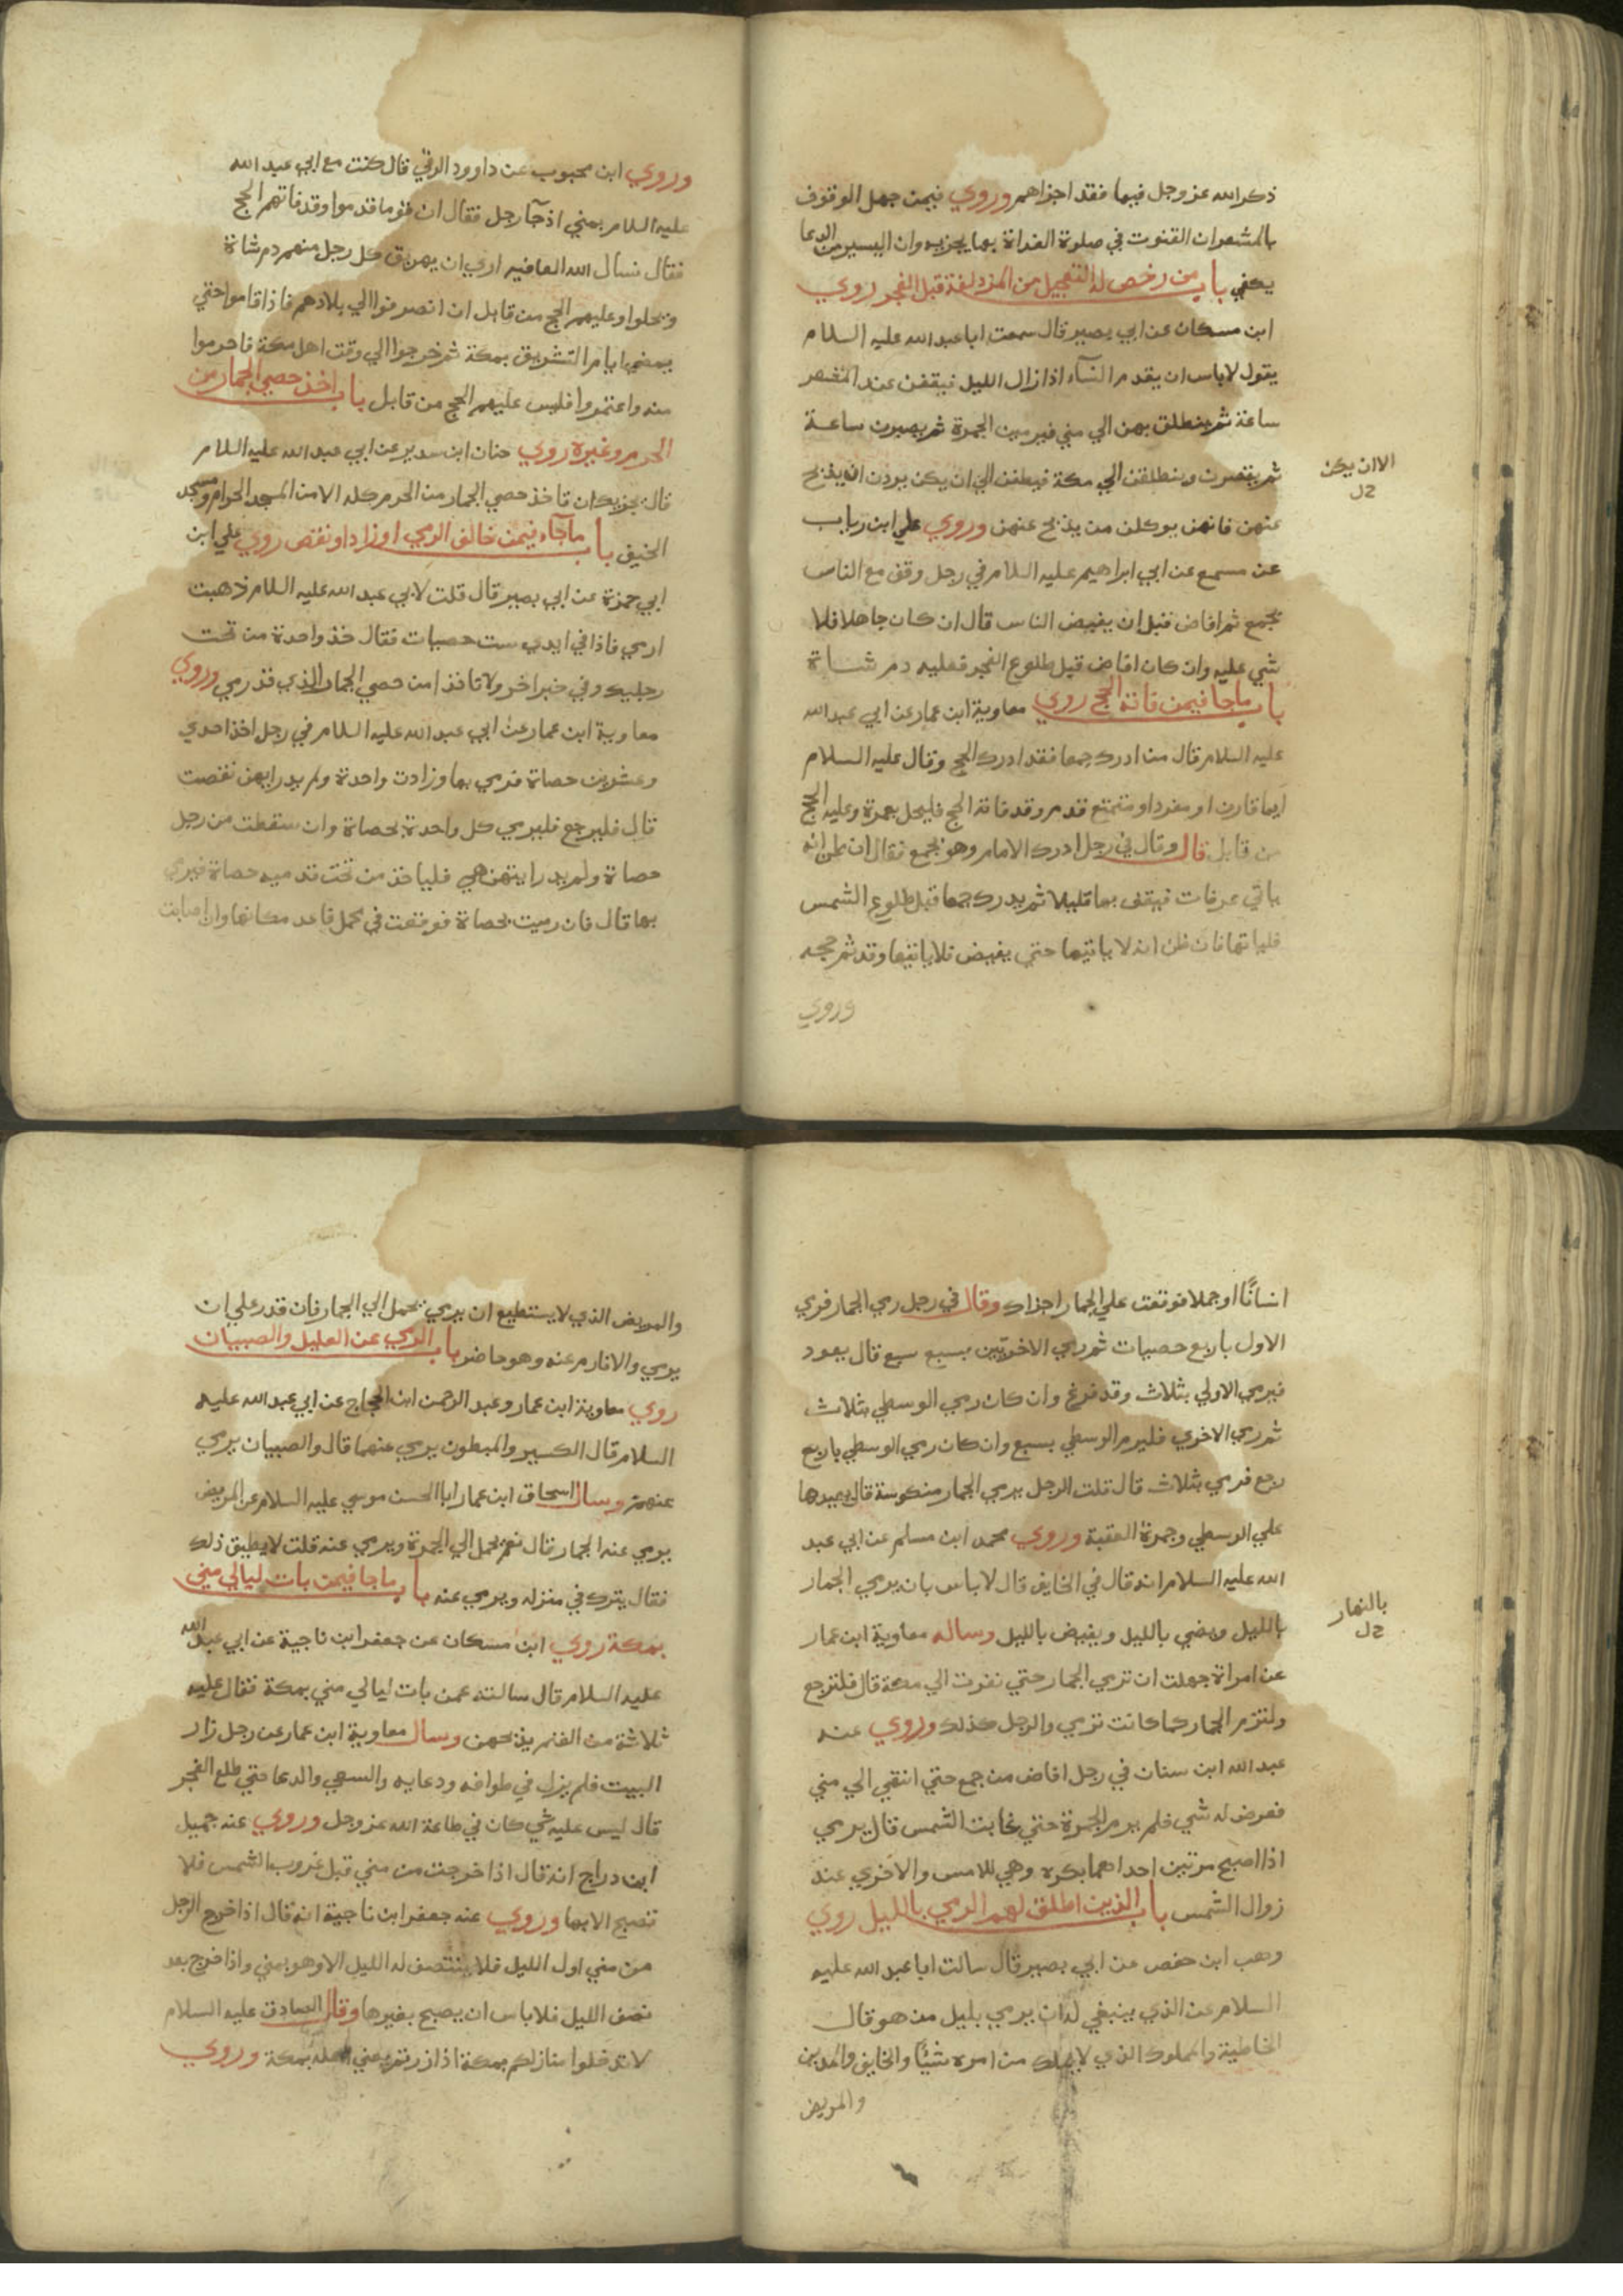 ذكر الله عز وجل فيها فقد اجزاهم وروي فيمن جهل الوقوف
بالمشعر ان القنوت في صلوة الغداة بها يجزيه وان اليسير من الدعا
يكفي باب من رخص له التعجيل من المزدلفة قبل الفجر روي
ابن مسكان عن ابي بصير قال سمعت ابا عبد الله عليه السلام
يقول لا باس ان يقدم النسآء اذا زال الليل فيقفن عند المشعر
ساعة ثم ينطلق بهن الي مني فيرمين الجمرة ثم يصبرن ساعة
ثم يقصرن وينطلقن الي مكة فيطفن الي ان يكن يردن ان يذبح
الا ان يكن
خل
عنهن فانهن يوكلن من يذبح عنهن وروي علي ابن رياب
عن مسمع عن ابي ابراهيم عليه السلام في رجل وقف مع الناس
بجمع ثم افاض قبل ان يفيض الناس قال ان كان جاهلا فلا
شي عليه وان كان افاض قبل طلوع الفجر فعليه دم شاة
باب ما جا فيمن فاته الحج روي معاوية ابن عمار عن ابي عبد الله
عليه السلام قال من ادرك جمعا فقد ادرك الحج وقال عليه السلام
ايما قارن او مفرد او متمتع قدم وقد فاته الحج فليحل بعمرة وعليه الحج
من قابل قال وقال في رجل ادرك الامام وهو بجمع فقال ان ظن انه
ياتي عرفات فيقف بها قليلا ثم يدرك جمعا قبل طلوع الشمس
فلياتها فان ظن انه لا ياتيها حتي يفيض فلا ياتيها وقد تم حجه
وروي
وروي ابن محبوب عن داوود الرقي قال كنت مع ابي عبد الله
عليه السلام بمني اذ جآ رجل فقال ان قوما قدموا وقد فاتهم الحج
فقال نسال الله العافيه اري ان يهريق كل رجل منهم دم شاة
ويحلوا وعليهم الحج من قابل ان انصرفوا الي بلادهم فاذا قاموا حتي
يمضي ايام التشريق بمكة ثم خرجوا الي وقت اهل مكة فاحرموا
منه واعتمروا فليس عليهم الحج من قابل باب اخذ حصي الجمار من
الحرم وغيرة روي حنان ابن سدير عن ابي عبد الله عليه السلام
قال يجزيك ان تاخذ حصي الجمار من الحرم كله الا من المسجد الحرام ومسجد
الخيف باب ما جآء فيمن خالف الرمي او زاد او نقص روي علي ابن
ابي حمزة عن ابي بصير قال قلت لابي عبد الله عليه السلام ذهبت
ارمي فاذا في ايدي ست حصيات فقال خذ واحدة من تحت
رجليك وفي خبر اخر ولا تاخذ من حصي الجمار الذي قد رمي وروي
معاوية ابن عمار عن ابي عبد الله عليه السلام في رجل اخذ احدي
وعشرين حصاة فرمي بها وزادت واحدة ولم يدر ايهن نقصت
قال فليرجع فليرمي كل واحدة بحصاة وان سقطت من رجل
حصاة ولم يدر ايتهن هي فلياخذ من تحت قدميه حصاة فيرمي
بها قال فان رميت بحصاة فوقعت في محمل فاعد مكانها وان اصابت
انسانًا او جملا فوقعت علي الجمار اجزاك وقال في رجل رمي الجمار فرمي
الاول باربع حصيات ثم رمي الاخرتين بسبع سبع قال يعود
فيرمي الاولي بثلاث وقد فرغ وان كان رمي الوسطي بثلاث
ثم رمي الاخري فليرم الوسطي بسبع وان كان رمي الوسطي باربع
رجع فرمي بثلاث قال قلت الرجل يرمي الجمار منكوسة قال يعيدها
علي الوسطي وجمرة العقبة وروي محمد ابن مسلم عن ابي عبد
الله عليه السلام انه قال في الخايف قال لا باس بان يرمي الجمار
بالليل ويضحي بالليل ويفيض بالليل وساله معاوية ابن عمار
بالنهار
خل
عن امراة جهلت ان ترمي الجمار حتي نفرت الي مكة قال فلترجع
ولترم الجمار كما كانت ترمي والرجل كذلك وروي عنه
عبد الله ابن سنان في رجل افاض من جمع حتي انتهي الي مني
فعرض له شي فلم يرم الجمرة حتي غابت الشمس قال يرمي
اذا اصبح مرتين احداهما بكره وهي للامس والاخري عند
زوال الشمس باب الذين اطلق لهم الرمي بالليل روي
وهب ابن حفص عن ابي بصير قال سالت ابا عبد الله عليه
السلام عن الذي ينبغي له ان يرمي بليل من هو قال
الخاطبة والمملوك الذي لا يملك من امره شيئًا والخايف والمدين
والمريض
والمريض الذي لا يستطيع ان يرمي يحمل الي الجمار فان قدر علي ان
يرمي والا فارم عنه وهو حاضر باب الرمي عن العليل والصبيان
روي معاوية ابن عمار وعبد الرحمن ابن الحجاج عن ابي عبد الله عليه
السلام قال الكسير والمبطون يرمي عنهما قال والصبيان يرمي
عنهم وسال اسحاق ابن عمار ابا الحسن موسي عليه السلام عن المريض
يرمي عنه الجمار قال نعم يحمل الي الجمرة ويرمي عنه قلت لا يطيق ذلك
فقال يترك في منزله ويرمي عنه باب ما جا فيمن بات ليالي مني
بمكة روي ابن مسكان عن جعفر ابن ناجية عن ابي عبد الله
عليه السلام قال سالته عمن بات ليالي مني بمكة فقال عليه
ثلاثة من الغنم يذبحهن وسال معاوية ابن عمار عن رجل زار
البيت فلم يزل في طوافه ودعايه والسعي والدعا حتي طلع الفجر
قال ليس عليه شي كان في طاعة الله عز وجل وروي عنه جميل
ابن دراج انه قال اذا خرجت من مني قبل غروب الشمس فلا
تصبح الا بها وروي عنه جعفر ابن ناجية انه قال اذا خرج الرجل
من مني اول الليل فلا ينتصف له الليل الا وهو بمني واذا خرج بعد
نصف الليل فلا باس ان يصبح بغيرها وقال الصادق عليه السلام
لا تدخلوا منازلكم بمكة اذا زرتم يعني اهل مكة وروي